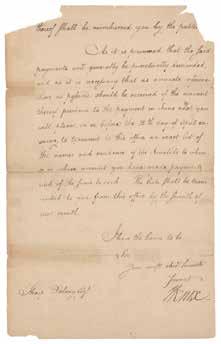 thereof shall be reimbursed you by the public
As it is presumed that the said
payments will generally be punctually demanded,
and as it is necessary that an accurate
or register should be received of the amount
thereof previous to the payment in june next you
will please, on or before the 10th day of April
to transmit to this office an exact list of
the names and residence of the Invalids to whom
or on whose account you have made payments
each of the sums to each. The list shall be
to you from this office by the fourth of
next month
I have the honor to be
Sir
Your most obed Servant
HKnox
Sharp Delany Esqr